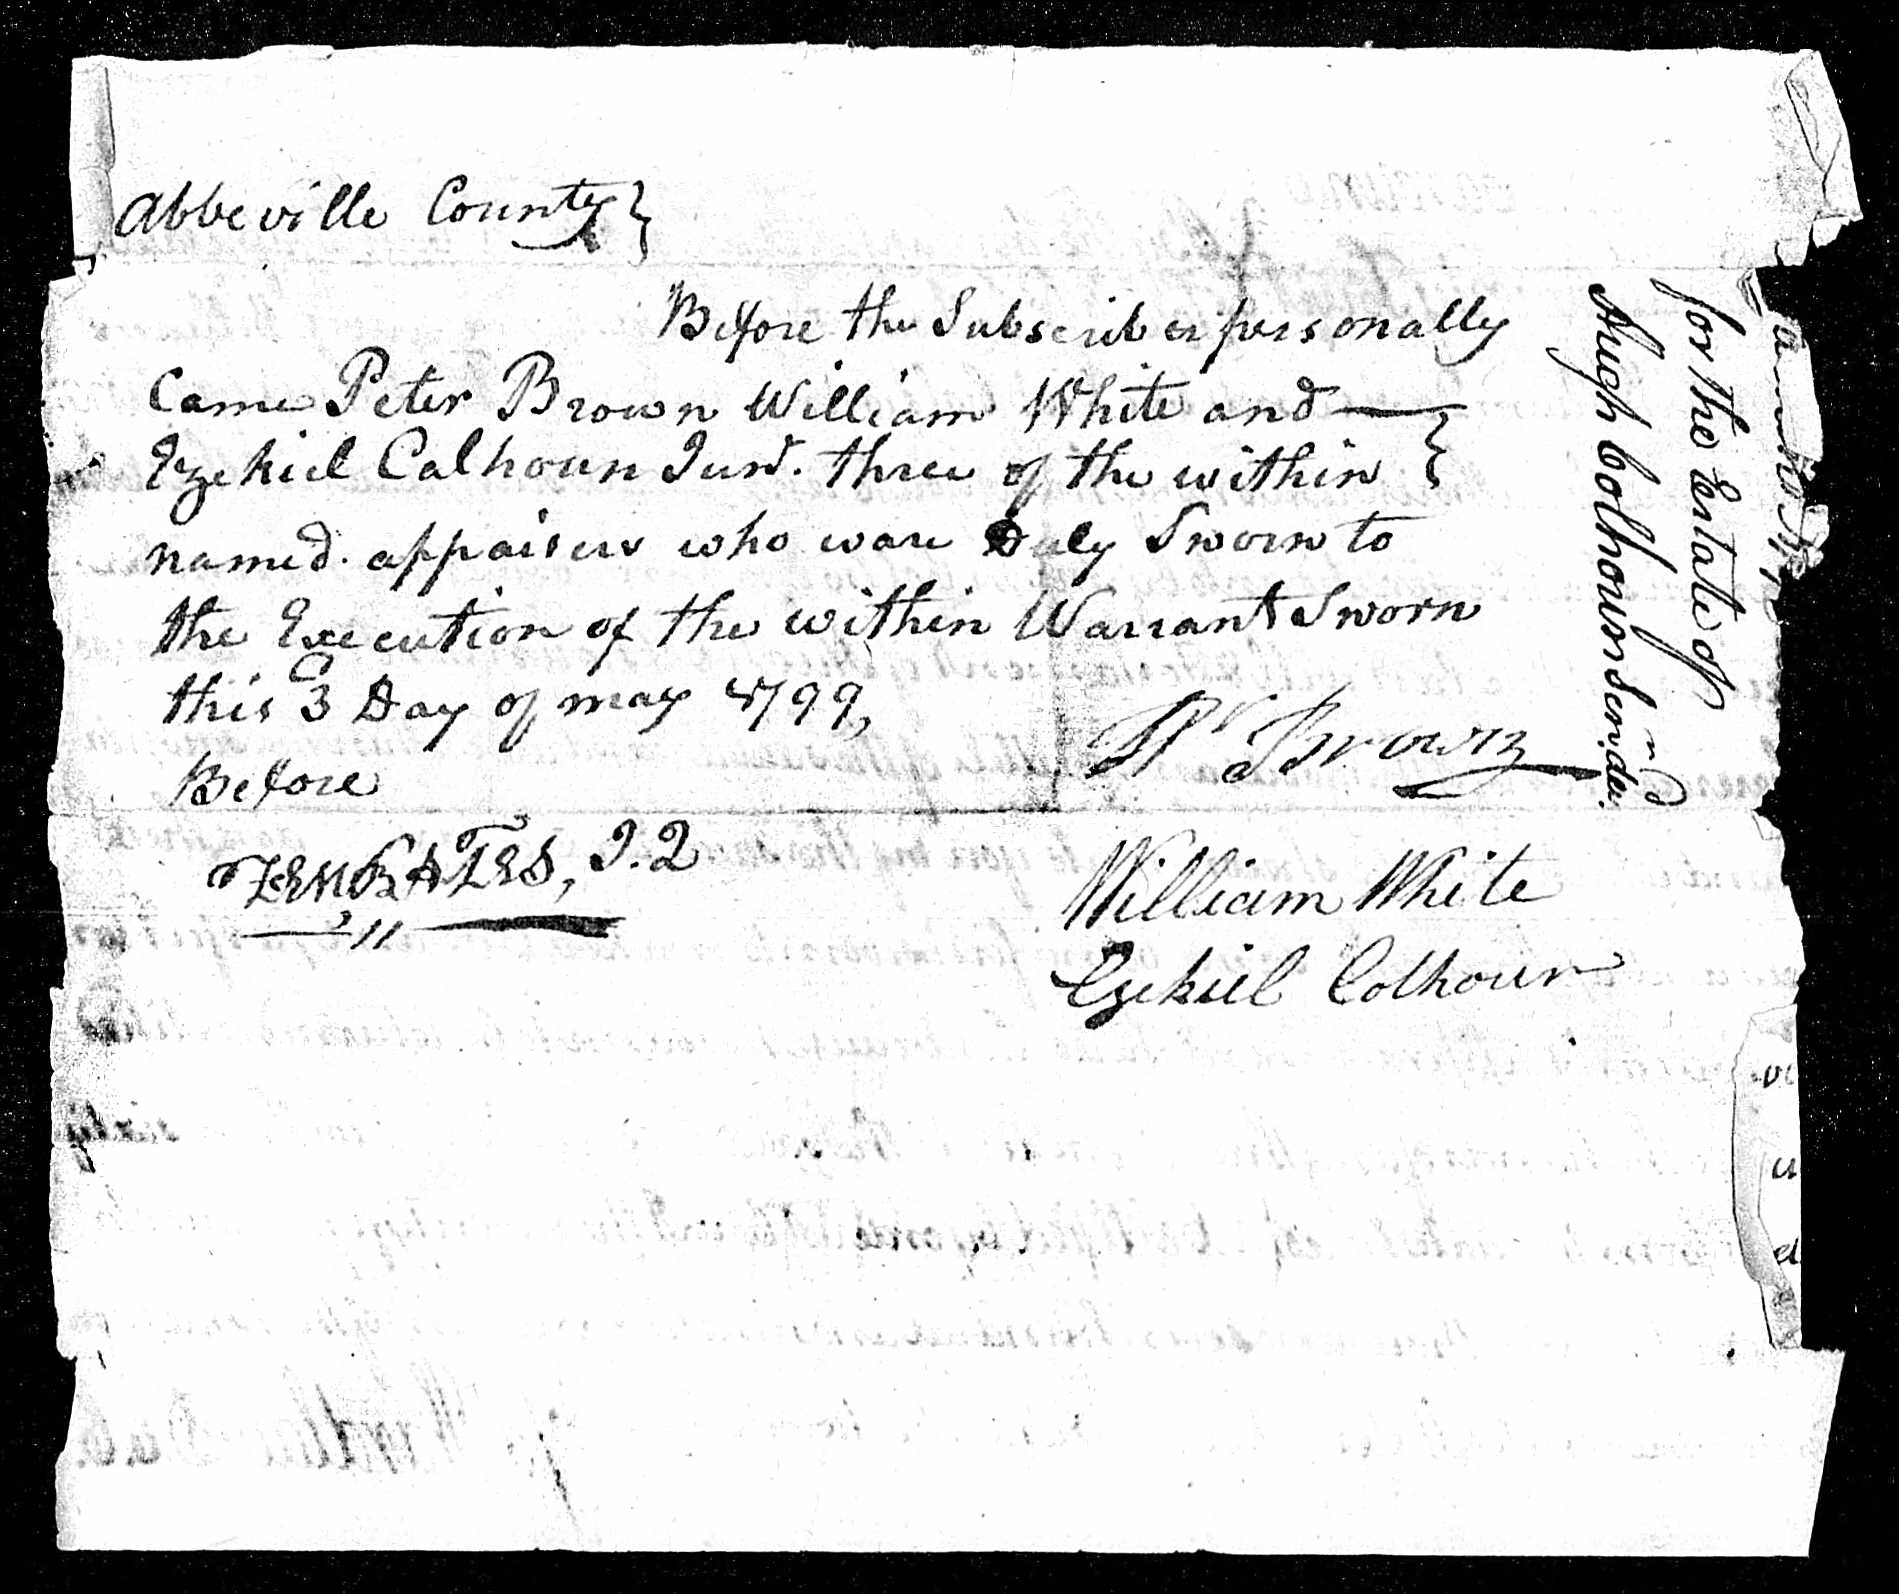 Abbeville County}
Before the Subscriber personally
Came Peter Brown William White and —
Ezekiel Calhoun Junr. three of the within }
named. appraisers who ware Duly Sworn to
the Execution of the within Warrant Sworn
this 3 Day of may 1799,
Before
J. Q
Pr Brown
William White
Ezekiel Colhoun
for the Estate of
Hugh Colhoun Senr. decd.